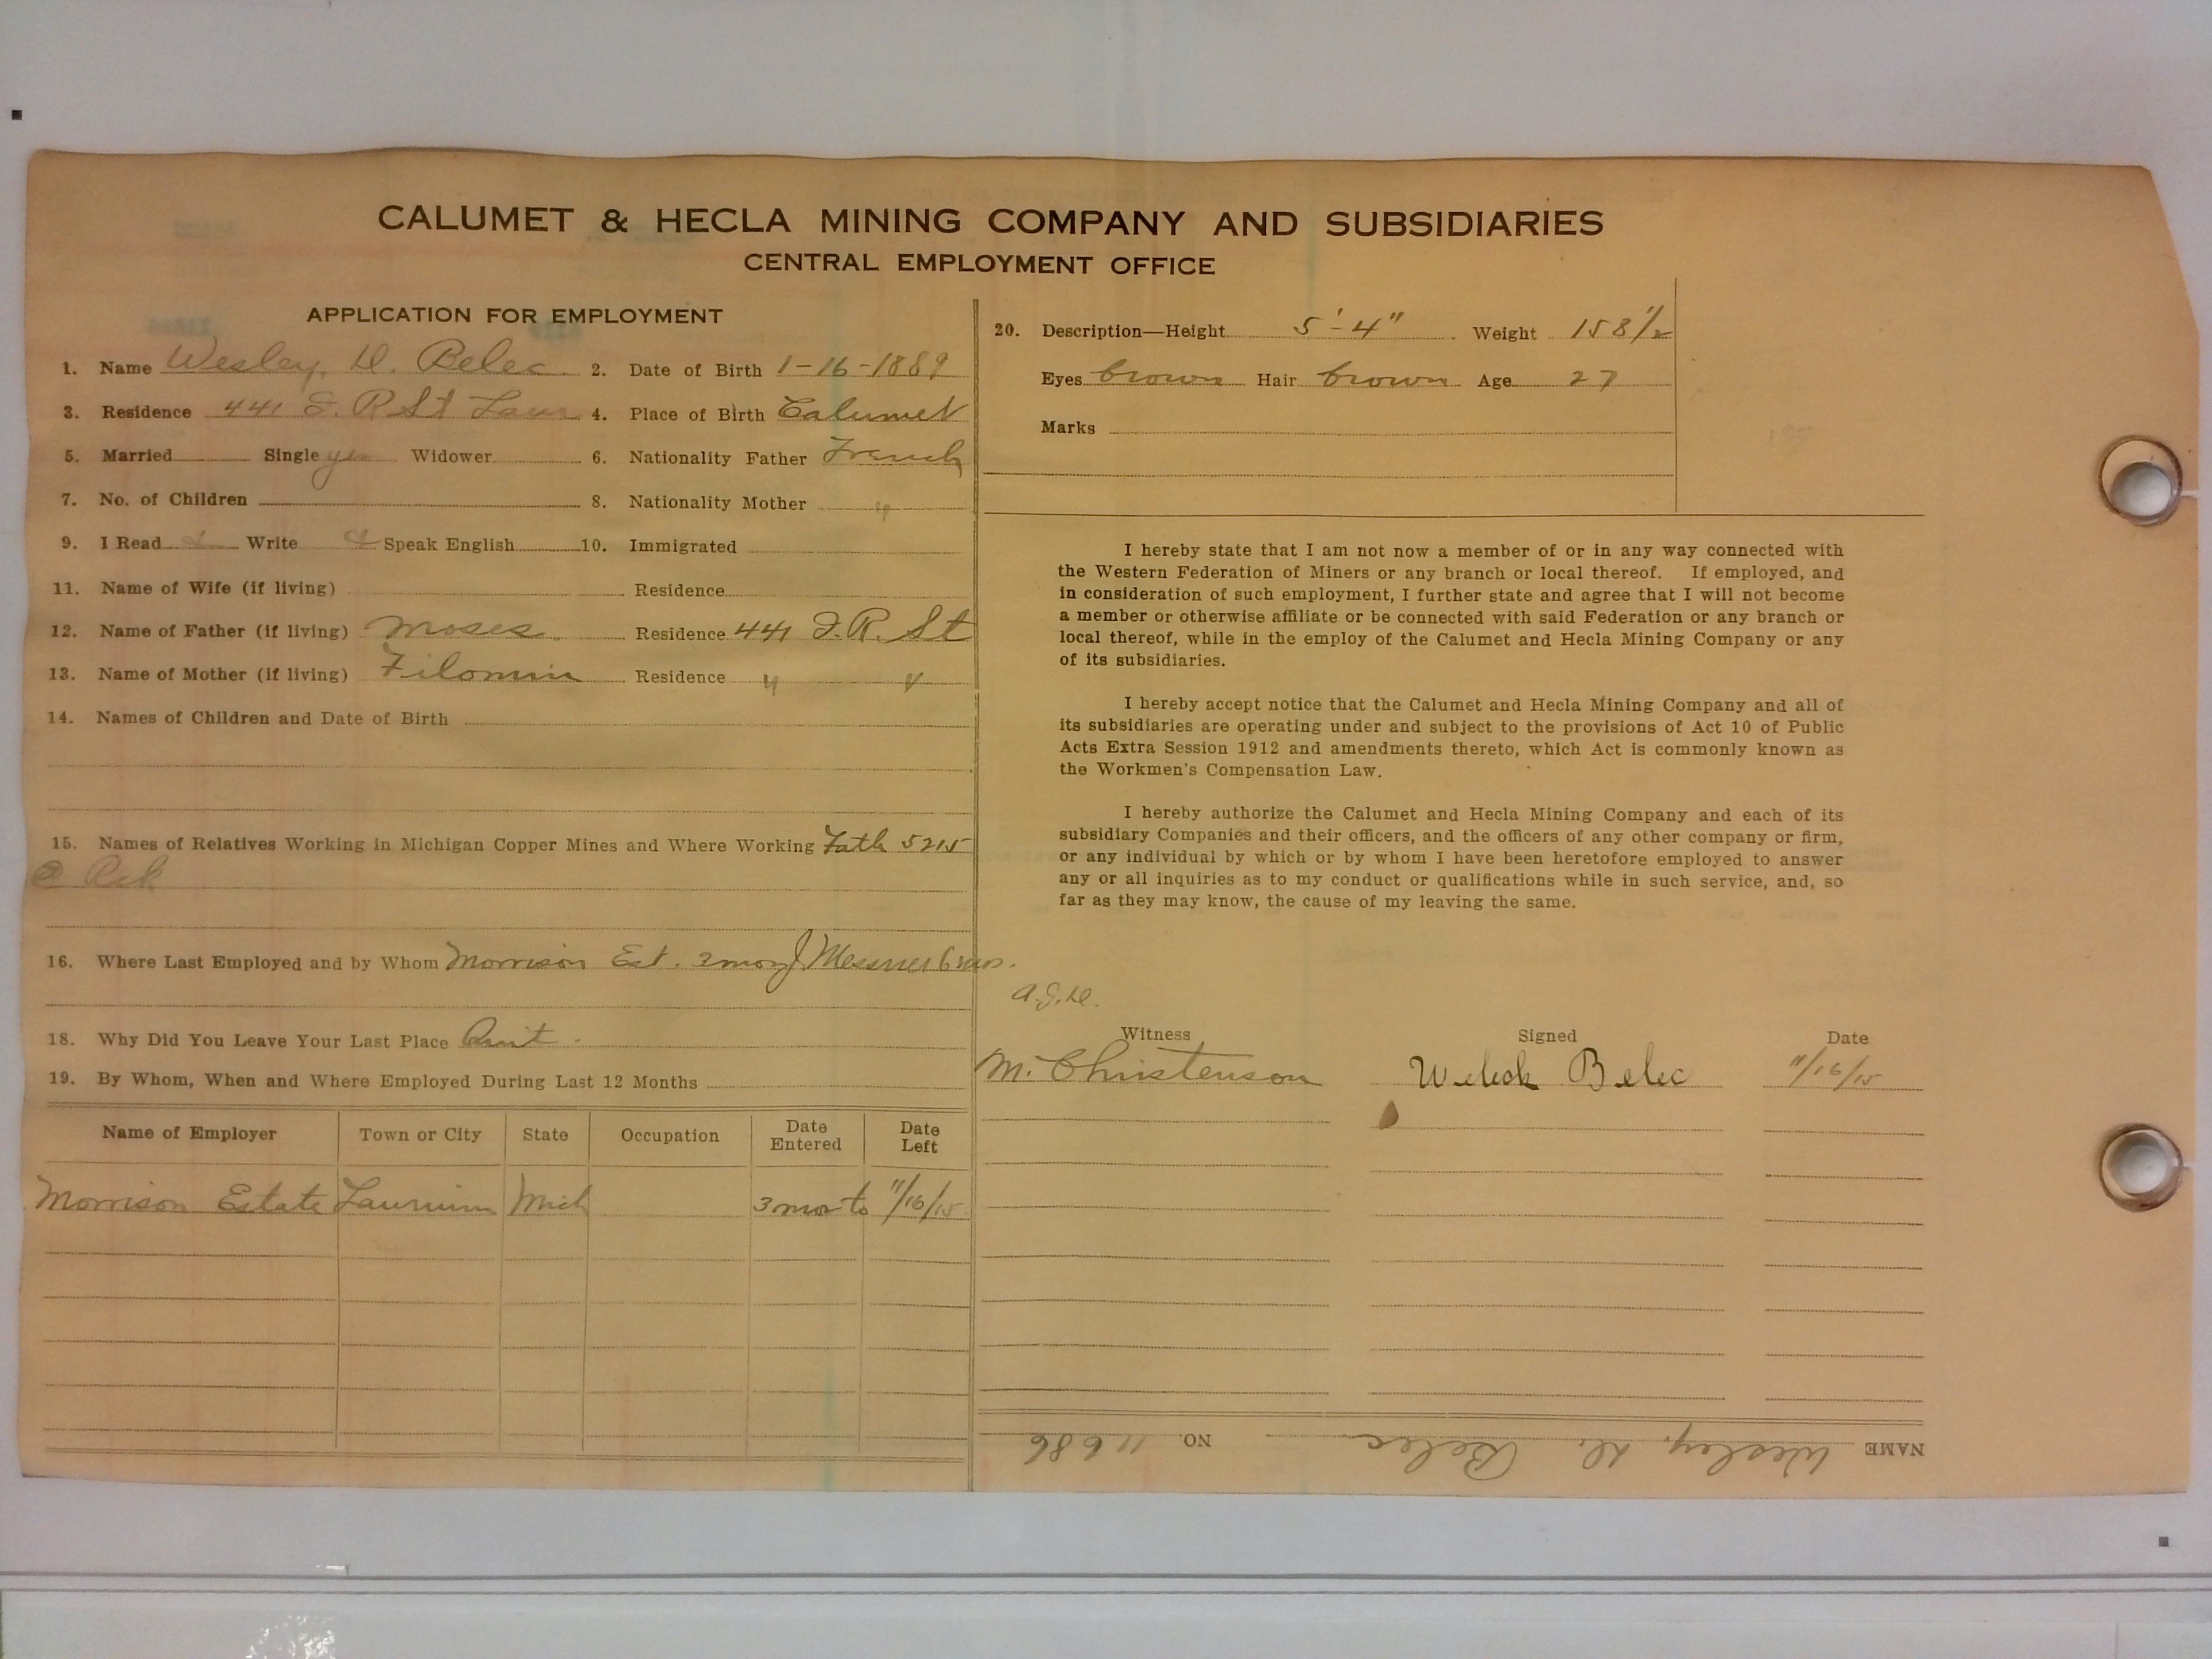 CALUMET & HECLA MINING COMPANY AND SUBSIDIARIES
CENTRAL EMPLOYMENT OFFICE
APPLICATION FOR EMPLOYMENT
1. Name Wesley. D. Belec 2. Date of Birth 1-16-1889
3. Residence 441 I. R St Laur 4. Place of Birth Calumet
5. Married Single yes Widower 6. Nationality Father French
7. No. of Children 8. Nationality Mother "
9. I Read Write Speak English 10. Immigrated
11. Name of Wife (if living) Residence
12. Name of Father (if living) Moses Residence 441 I. R. St
13. Name of Mother (if living) Filomin Residence " "
14. Names of Children and Date of Birth
15. Names of Relatives Working in Michigan Copper Mines and Where Working Fath 5215
16. Where Last Employed and by Whom Morrison Est. 3 mos J. Messner 6 mos.
18. Why Did You Leave Your Last Place Quit.
19. By Whom, When and Where Employed During Last 12 Months
Name of Employer Town or City State Occupation Date Entered Date Left
Morrison Estate Laurium Mich 3 mos to 11/16/15
20. Description—Height 5'-4" Weight 158 1/2
Eyes brown Hair brown Age 27
Marks
I hereby state that I am not now a member of or in any way connected with
the Western Federation of Miners or any branch or local thereof. If employed, and
in consideration of such employment, I further state and agree that I will not become
a member or otherwise affiliate or be connected with said Federation or any branch or
local thereof, while in the employ of the Calumet and Hecla Mining Company or any
of its subsidiaries.
I hereby accept notice that the Calumet and Hecla Mining Company and all of
its subsidiaries are operating under and subject to the provisions of Act 10 of Public
Acts Extra Session 1912 and amendments thereto, which Act is commonly known as
the Workmen's Compensation Law.
I hereby authorize the Calumet and Hecla Mining Company and each of its
subsidiary Companies and their officers, and the officers of any other company or firm,
or any individual by which or by whom I have been heretofore employed to answer
any or all inquiries as to my conduct or qualifications while in such service, and, so
far as they may know, the cause of my leaving the same.
Witness Signed Date
M. Christenson Belec 11/16/15
NAME Wesley. D. Belec NO. 11686